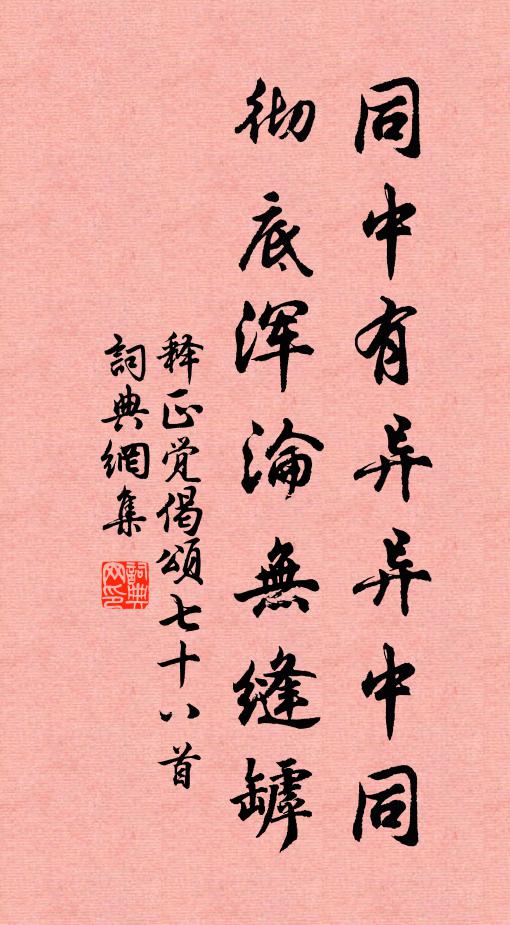 同中有异异中同
彻底浑淪無缝罅
释正觉偈頌七十八首
詞典網集
詞典网印